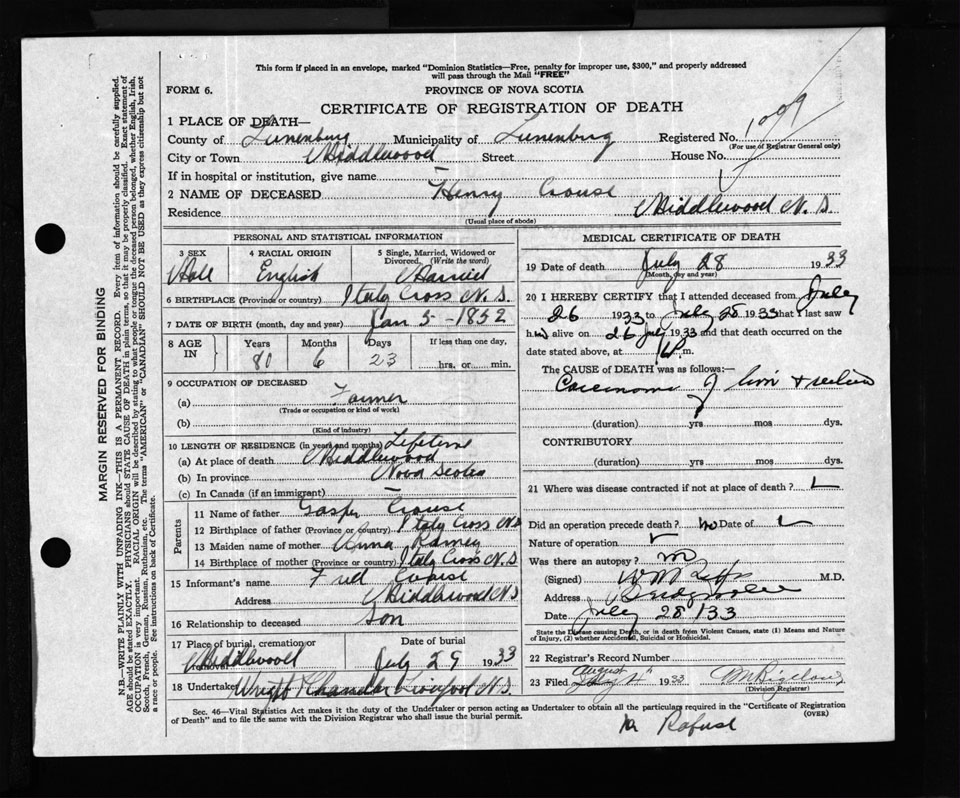 This form if placed in an envelope, marked "Dominion Statistics—Free, penalty for improper use, $300," and properly addressed
will pass through the Mail "FREE"
FORM 6.
PROVINCE OF NOVA SCOTIA
CERTIFICATE OF REGISTRATION OF DEATH
1099
1 PLACE OF DEATH—
County of Lunenburg Municipality of Lunenburg Registered No.
(For use of Registrar General only)
City or Town Middlewood Street House No.
If in hospital or institution, give name —
2 NAME OF DECEASED Henry Crouse
Residence Middlewood N.S
(Usual place of abode)
PERSONAL AND STATISTICAL INFORMATION
3 SEX 4 RACIAL ORIGIN 5 Single, Married, Widowed or
Divorced. (Write the word)
Male English Married
6 BIRTHPLACE (Province or country) Italy Cross N.S.
7 DATE OF BIRTH (month, day and year) Jan 5-1852
8 AGE IN Years Months Days If less than one day,
80 6 23 hrs. or min.
9 OCCUPATION OF DECEASED
(a) Farmer
(Trade or occupation or kind of work)
(b)
(Kind of industry)
10 LENGTH OF RESIDENCE (in years and months) Lifetime
(a) At place of death Middlewood
(b) In province Nova Scotia
(c) In Canada (if an immigrant) —
Parents
11 Name of father Gasper Crouse
12 Birthplace of father (Province or country) Italy Cross N.S
13 Maiden name of mother Anna Ramey
14 Birthplace of mother (Province or country) Italy Cross N.S
15 Informant's name Fred Crouse
Address Middlewood N.S
16 Relationship to deceased Son
17 Place of burial, cremation or
removal Middlewood
Date of burial
July 29 1933
18 Undertaker Wright Chandler Liverpool N.S.
MEDICAL CERTIFICATE OF DEATH
19 Date of death July 28 1933
(Month, day and year)
20 I HEREBY CERTIFY that I attended deceased from July
26 1933 to July 28 1933 that I last saw
h alive on 26 July 1933 and that death occurred on the
date stated above, at m.
The CAUSE OF DEATH was as follows:—
Carcinoma of
(duration) yrs mos dys.
CONTRIBUTORY
(duration) yrs. mos dys.
21 Where was disease contracted if not at place of death?
Did an operation precede death? no Date of
Nature of operation
Was there an autopsy? no
(Signed) M.D.
Address Bridgewater
Date July 28/33
State the Disease causing Death, or in death from Violent Causes, state (1) Means and Nature
of Injury, (2) whether Accidental, Suicidal or Homicidal.
22 Registrar's Record Number
23 Filed August 1933 Bigelow
(Division Registrar)
Sec. 46—Vital Statistics Act makes it the duty of the Undertaker or person acting as Undertaker to obtain all the particulars required in the "Certificate of Registration
of Death" and to file the same with the Division Registrar who shall issue the burial permit.
(OVER)
Rafuse
MARGIN RESERVED FOR BINDING
N.B.—WRITE PLAINLY WITH UNFADING INK—THIS IS A PERMANENT RECORD. Every item of information should be carefully supplied.
AGE should be stated EXACTLY. PHYSICIANS should STATE CAUSE OF DEATH in plain terms, so that it may be properly classified. Exact statement of
OCCUPATION is very important. RACIAL ORIGIN will be described by stating to what people or tongue the deceased person belonged, whether English, Irish,
Scotch, French, German, Russian, Ruthenian, etc. The terms "AMERICAN" or "CANADIAN" SHOULD NOT BE USED as they express citizenship but not
a race or people. See instructions on back of Certificate.